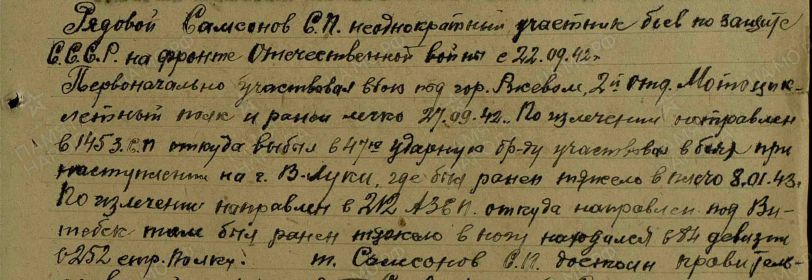 Рядовой Самсонов С.П. неоднократный участник боев по защите
С.С.С.Р. на фронте Отечественной войны с 22.09.42г
Первоначально участвовал в бою под гор. Ржевом, 2й отд. Мотоцик-
летный полк и ранен легко 27.09.42. По излечении направлен
в 1453.СП откуда выбыл в 47ю ударную бр-ду участвовал в боях при
наступлении на г. В-Луки, где был ранен тяжело в плечо 8.01.43г
По излечении направлен в 212 АЗСП. откуда направлен под Ви-
тебск там был ранен тяжело в ногу находился в 84 дивизии
в 252 стр. Полку. т. Самсонов С.П. достоин правитель-